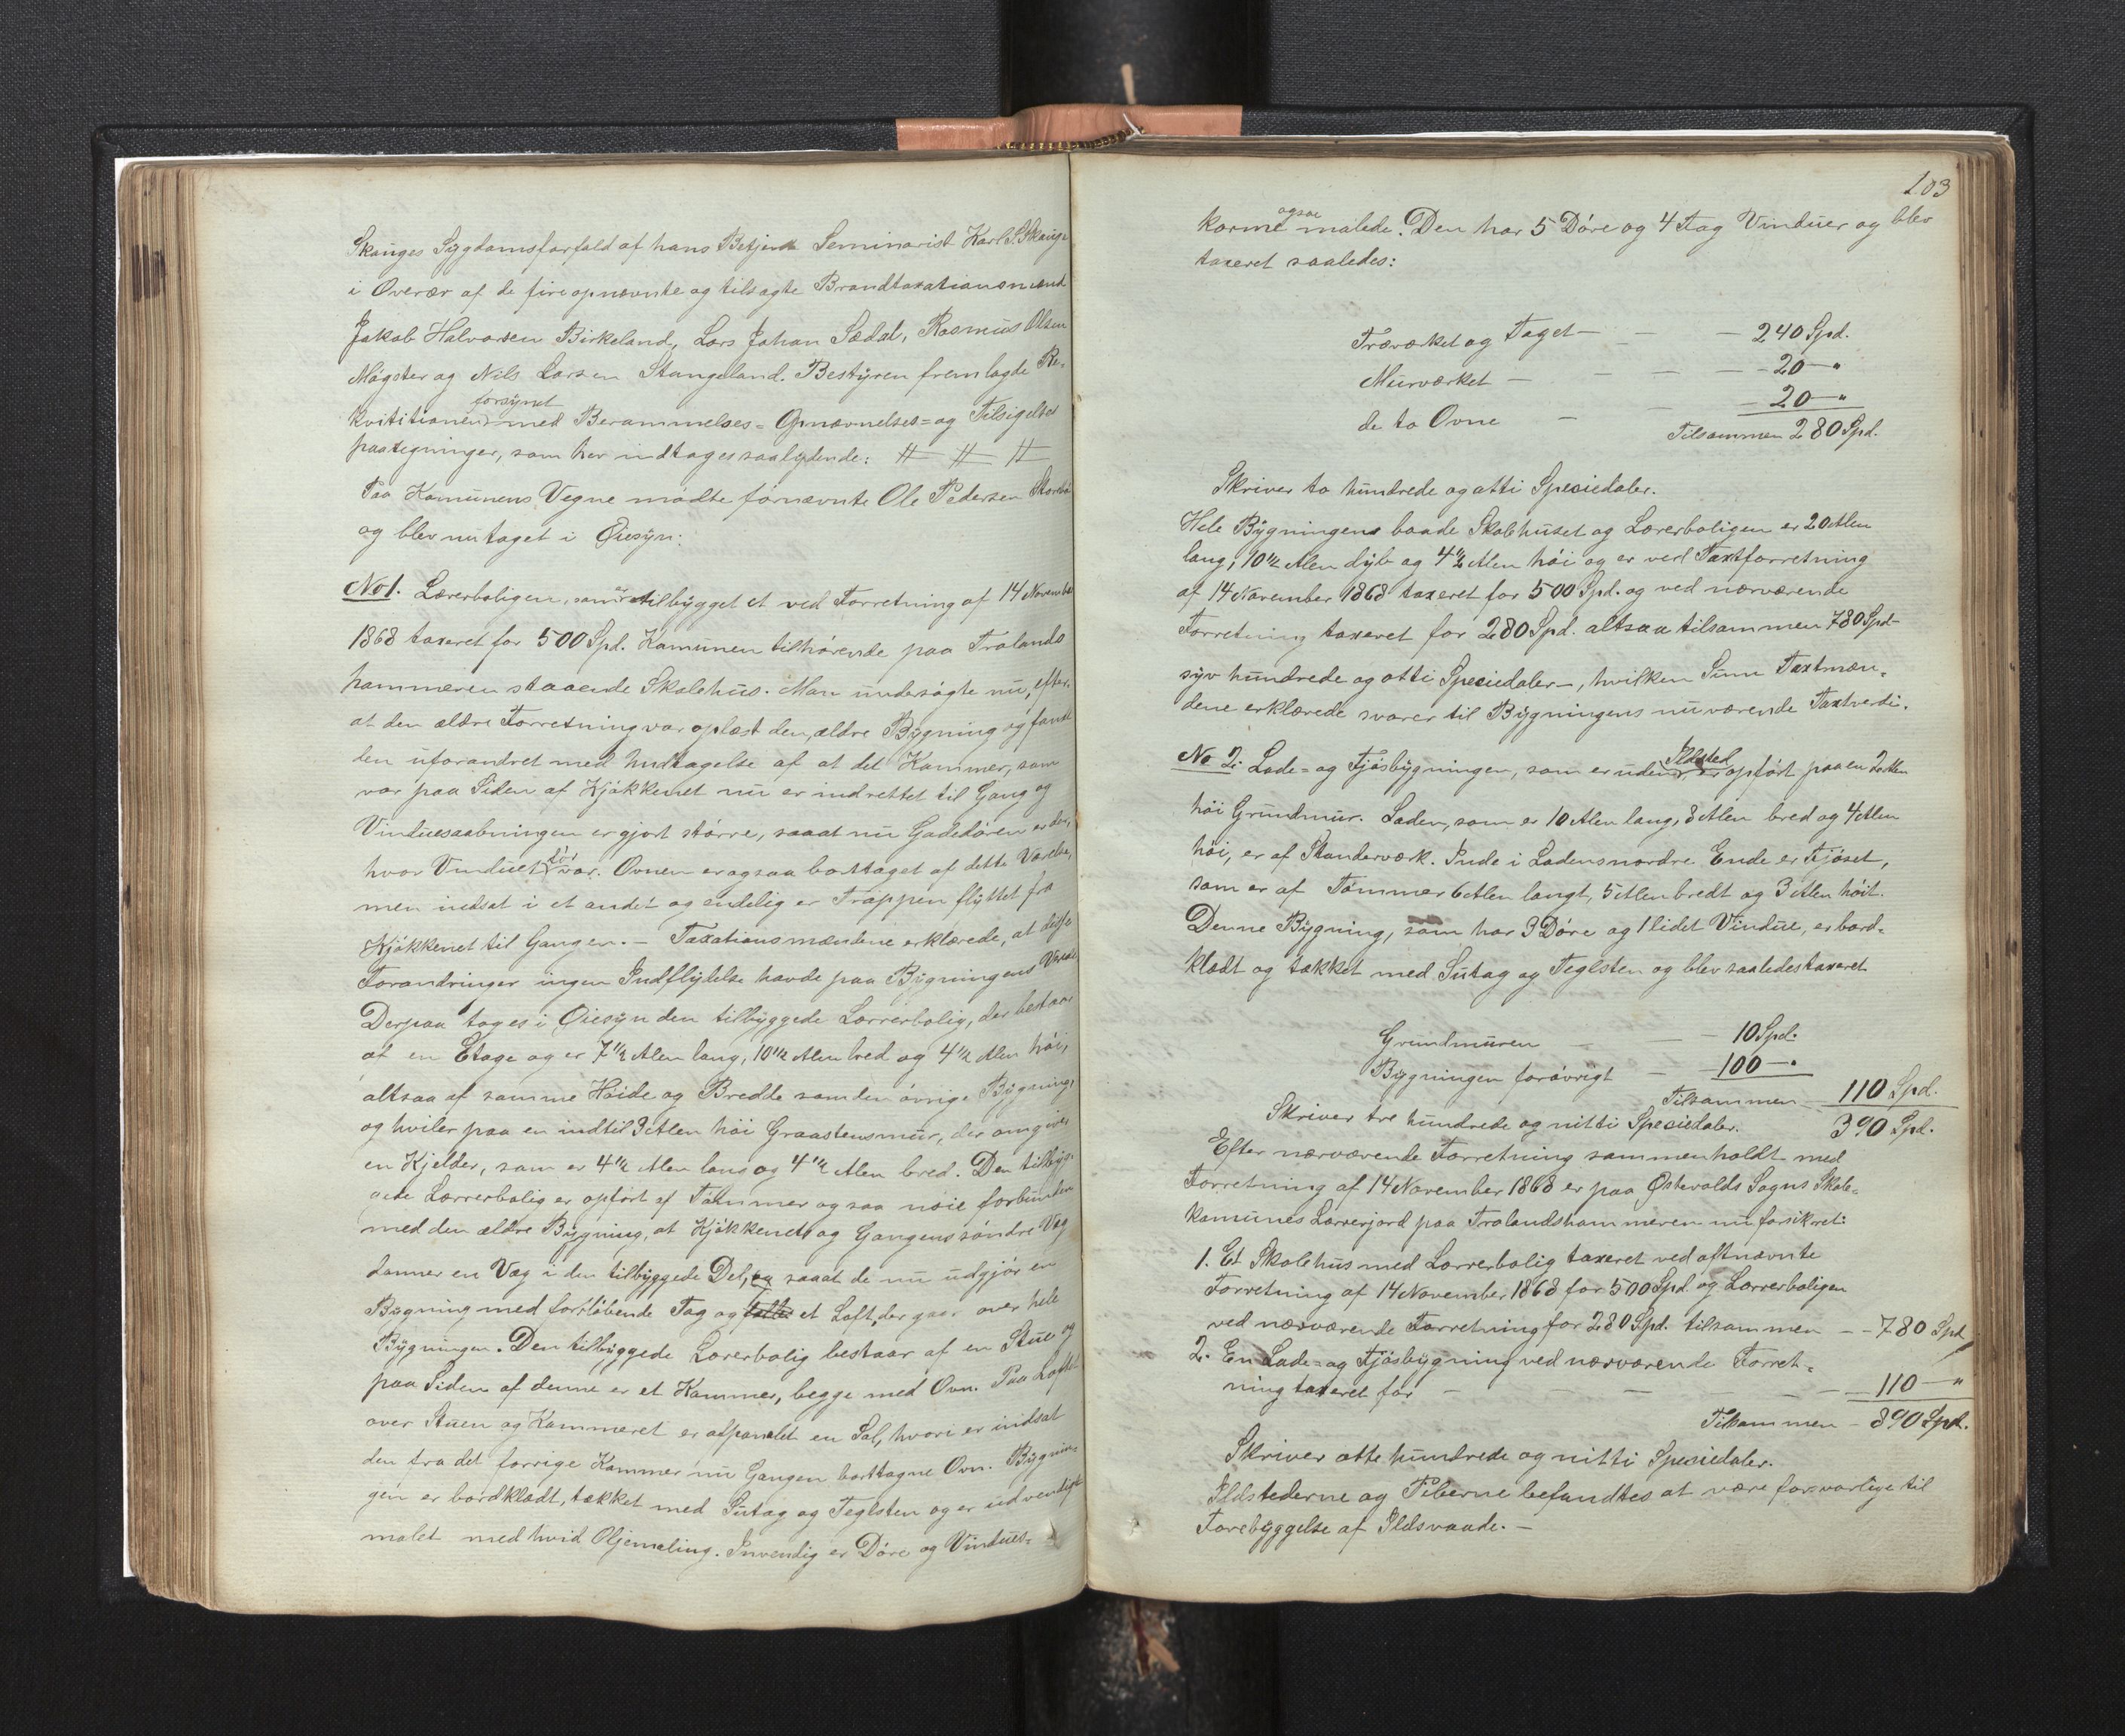 Skauges Sygdomsforfald af hans Betjent Seminarist Karl S. Skauge
i Overvær af de fire opnævnte og tilsagte Brandtaxationsmænd
Jakob Halvorsen Birkeland, Lars Johan Sædal, Rasmus Olsen
Møgster og Nils Larsen Stangeland. Bestyren fremlagde Re-
kvisitionen forsynet med Berammelses- Opnævnelses- og Tilsigelses
paategninger, som her indtages saalydende: # # #
Paa Komunens Vegne mødte førnævnte Ole Pedersen
og blev nu taget i Øiesyn:
No 1. Lærerboligen, som er tilbygget et ved Forretning af 14 November
1868 taxeret for 500 Spd. Komunen tilhørende paa Trolands
hammeren staaende Skolehus. Man undersøgte nu, efter
at den ældre Forretning var oplæst den ældre Bygning og fandt
den uforandret med Undtagelse af at det Kammer, som
var paa Siden af Kjøkkenet nu er indrettet til Gang og
Vinduesaabningen er gjort større, saaat nu Gadedøren er der,
hvor Vinduet før var. Ovnen er ogsaa borttaget af dette Værelse,
men indsat i et andet og endelig er Trappen flyttet fra
Kjøkkenet til Gangen. – Taxationsmændene erklærede, at disse
Forandringer ingen Indflydelse havde paa Bygningens Værdi
Derpaa toges i Øiesyn den tilbyggede Lærerbolig, der bestaar
af en Etage og er 7 1/2 Alen lang, 10 1/2 Alen bred og 4 1/2 Alen høi,
altsaa af samme Høide og Bredde som den øvrige Bygning,
og hviler paa en indtil 3 Alen høi Graastensmur, der omgiver
en Kjelder, som er 4 1/2 Alen lang og 4 1/2 Alen bred. Den tilbyg-
gede Lærerbolig er opført af Tømmer og saa nøie forbunden
med den ældre Bygning, at Kjøkkenets og Gangens søndre Væg
danner en Væg i den tilbyggede Del, og saaat de nu udgjør en
Bygning med fortløbende Tag og et Loft, der gaar over hele
Bygningen. Den tilbyggede Lærerbolig bestaar af en Stue og
paa Siden af denne er et Kammer, begge med Ovn. Paa Loftet
over Stuen og Kammeret er afpanelet en Sal, hvori er indsat
den fra det forrige Kammer nu Gangen borttagne Ovn. Bygnin-
gen er bordklædt, tækket med Sutag og Teglsten og er udvendigt
malet med hvid Oljemaling. Invendig er Døre og Vindues-
103
karme ogsaa malede. Den har 5 Døre og 4 Fag Vinduer og blev
taxeret saaledes:
Træværket og Taget – – 240 Spd.
Murværket – – – – 20 – "
de to Ovne – – – 20 – "
Tilsammen 280 Spd.
Skriver to hundrede og otti Speciedaler.
Hele Bygningens baade Skolehuset og Lærerboligen er 20 Alen
lang, 10 1/2 Alen dyb og 4 1/2 Alen høi og er ved Taxtforretning
af 14 November 1868 taxeret for 500 Spd. og ved nærværende
Forretning taxeret for 280 Spd. altsaa tilsammen 780 Spd –
syv hundrede og otti Speciedaler –, hvilken Sum Taxtmæn-
dene erklærede svarer til Bygningens nuværende Taxtverdi.
No 2. Lade- og Fjøsbygningen, som er uden Ildsted er opført paa en 2 Alen
høi Grundmur. Laden, som er 10 Alen lang, 8 Alen bred og 4 Alen
høi, er af Standerværk. Inde i Ladens nordre Ende er Fjøset,
som er af Tømmer 6 Alen langt, 5 Alen bredt og 3 Alen høit.
Denne Bygning, som har 3 Døre og 1 lidet Vindue, er bord-
klædt og tækket med Sutag og Teglsten og blev saaledes taxeret
Grundmuren – – 10 Spd.
Bygningen forøvrigt – 100 – "
Tilsammen – 110 Spd.
Skriver tre hundrede og nitti Speciedaler. 390 Spd.
Efter nærværende Forretning sammenholdt med
Forretning af 14 November 1868 er paa Østevolds Sogns Skole-
komunes Lærerjord paa Trolandshammeren nu forsikret:
1. Et Skolehus med Lærerbolig taxeret ved oftnævnte
Forretning af 14 November 1868 for 500 Spd. og Lærerboligen
ved nærværende Forretning for 280 Spd. tilsammen – – 780 Spd
2. En Lade- og Fjøsbygning ved nærværende Forret-
ning taxeret for – – – – 110 – "
Tilsammen – 890 Spd.
Skriver otte hundrede og nitti Speciedaler.
Ildstederne og Piberne befandtes at være forsvarlige til
Forebyggelse af Ildsvaade. –